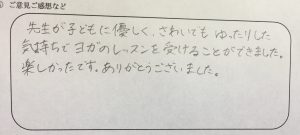 ご意見ご感想など
先生が子どもに優しく、さわいでも ゆったりした
気持ちでヨガのレッスンを受けることができました。
楽しかったです。ありがとうございました。